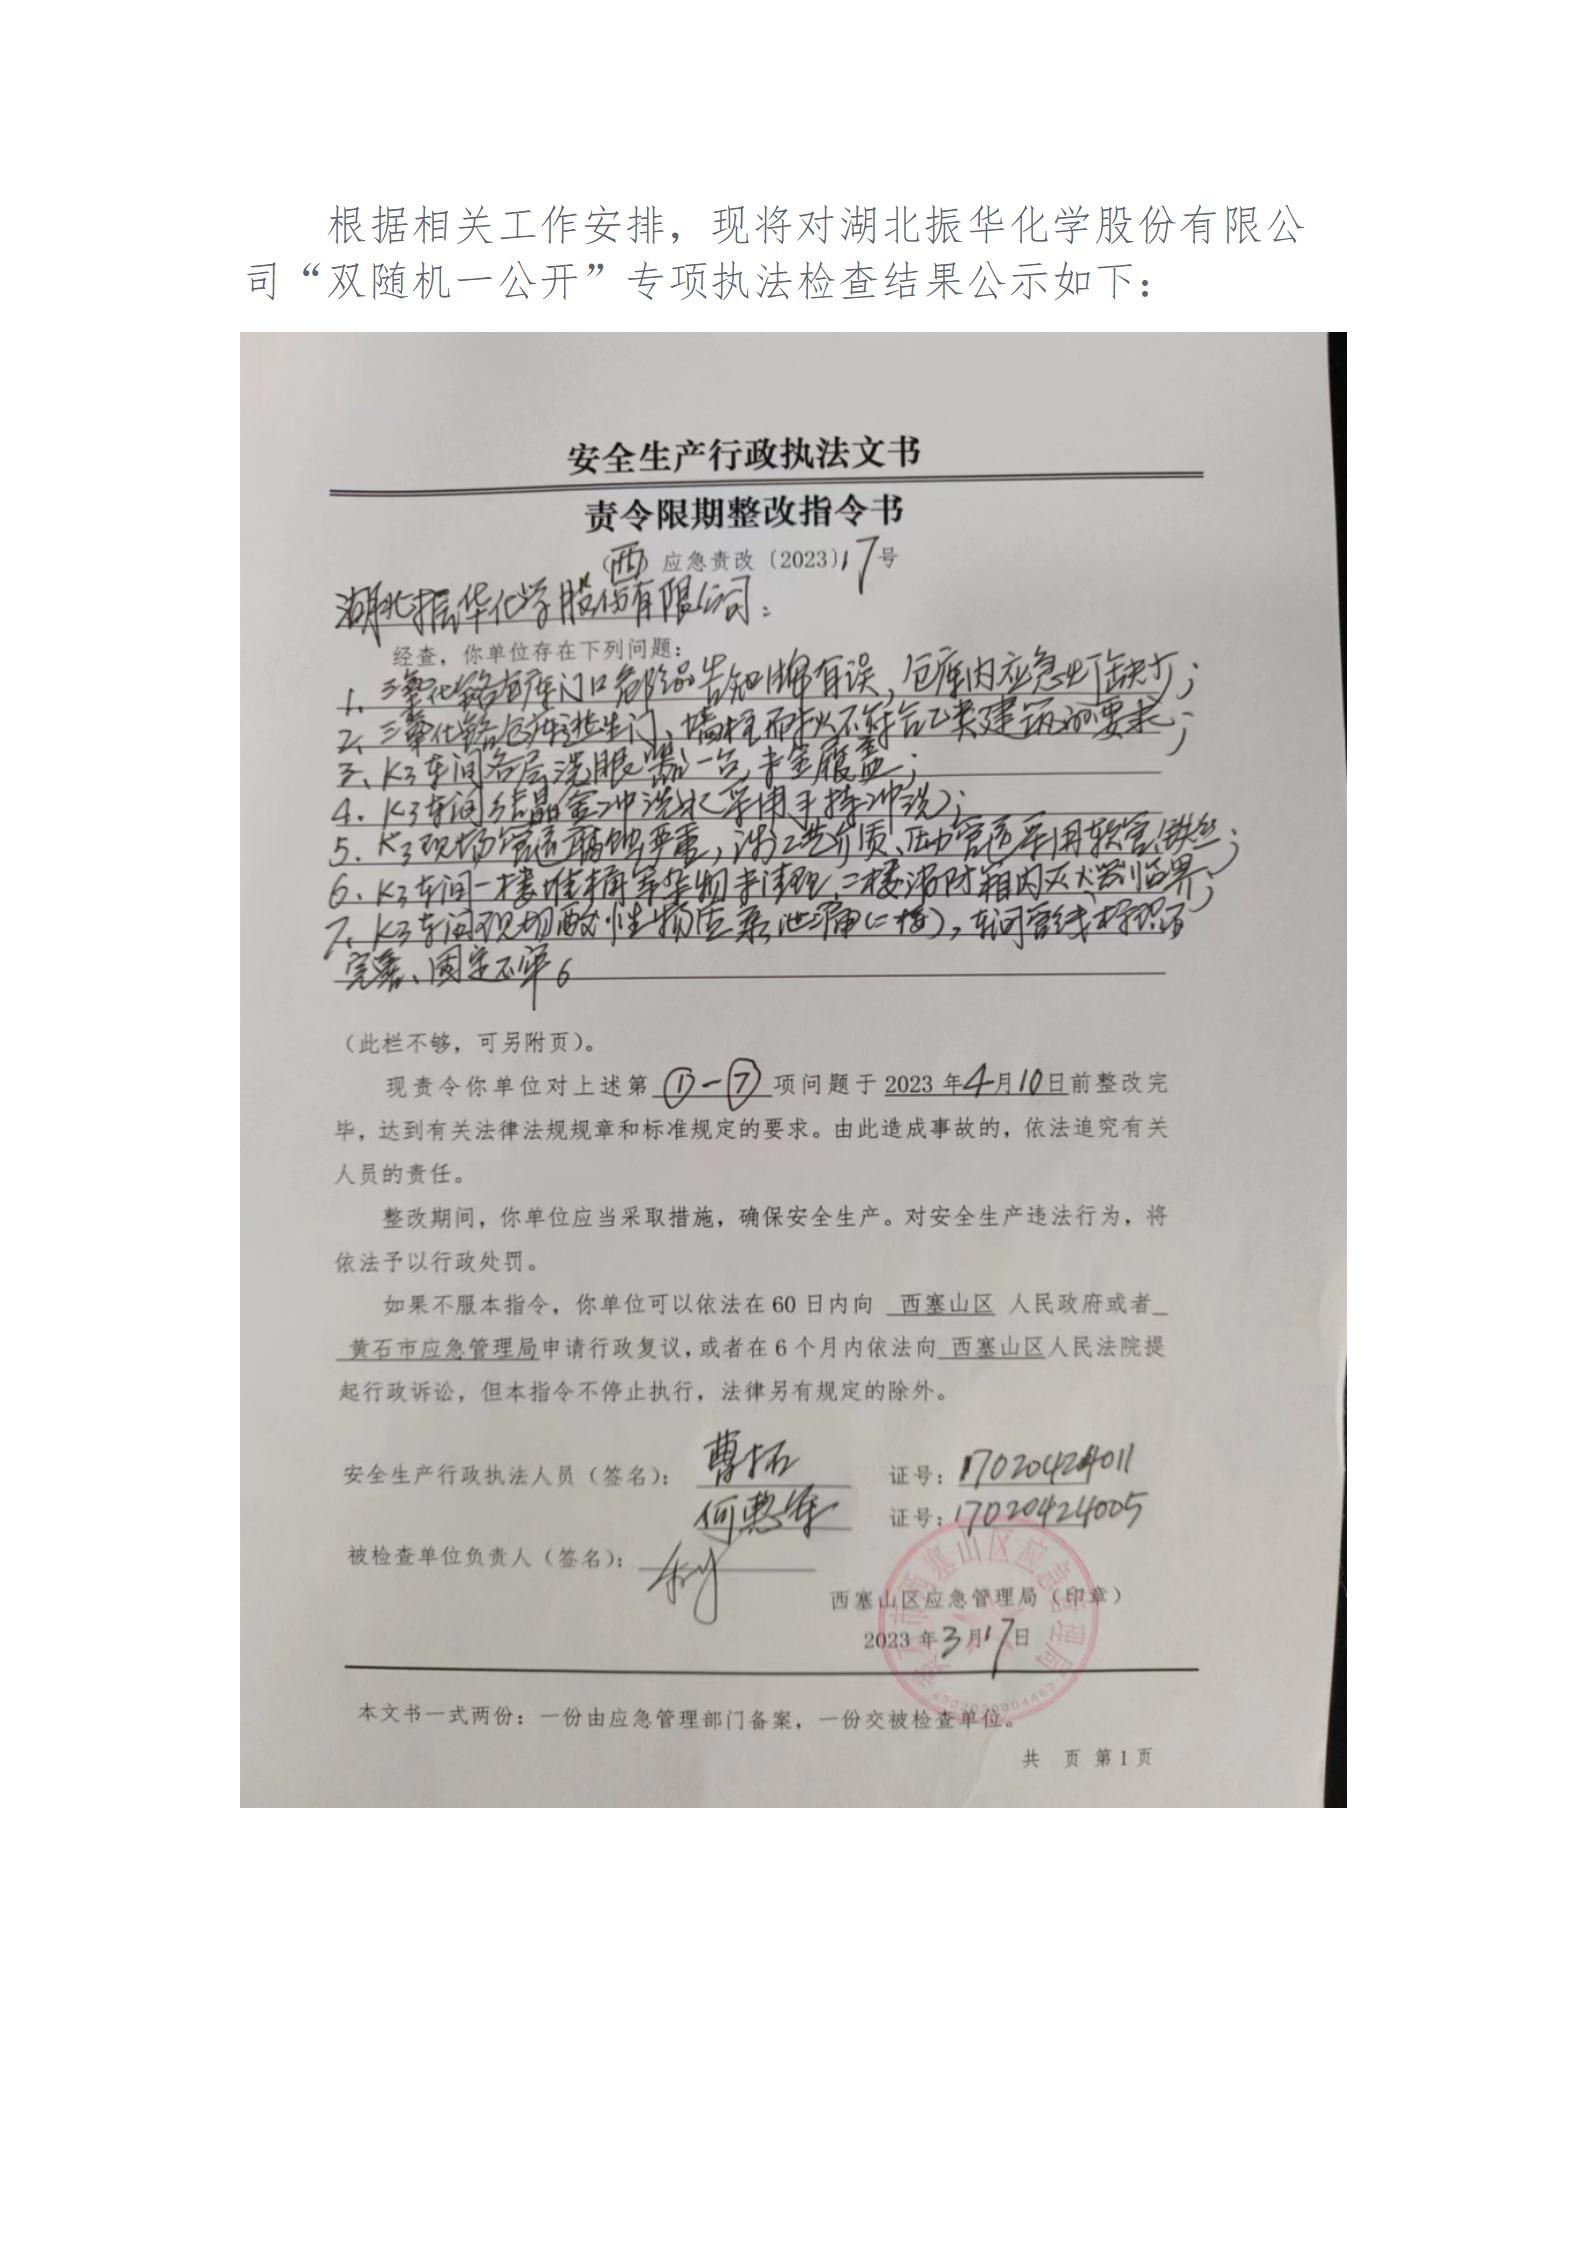 根据相关工作安排，现将对湖北振华化学股份有限公
司“双随机一公开”专项执法检查结果公示如下：
安全生产行政执法文书
责令限期整改指令书
（西）应急责改〔2023〕17号
湖北振华化学股份有限公司：
经查，你单位存在下列问题：
1、三氧化铬仓库门口危险品告知牌有误，仓库内应急灯缺少；
2、三氧化铬仓库逃生门、墙柱耐火不符合乙类建筑的要求；
3、K3车间各层洗眼器一台，未全覆盖；
4、K3车间结晶釜冲洗水采用手持冲洗；
5、K3现场管道腐蚀严重，涉工艺介质、压力管道采用软管、铁丝；
6、K3车间一楼堆桶等杂物未清理，二楼消防箱内灭火器临界；
7、K3车间现场酸性物质泵泄漏（二楼），车间管线标识不
完善、固定不牢。
（此栏不够，可另附页）。
现责令你单位对上述第 ①—⑦ 项问题于 2023 年4月10日前整改完
毕，达到有关法律法规规章和标准规定的要求。由此造成事故的，依法追究有关
人员的责任。
整改期间，你单位应当采取措施，确保安全生产。对安全生产违法行为，将
依法予以行政处罚。
如果不服本指令，你单位可以依法在 60 日内向 西塞山区 人民政府或者
黄石市应急管理局申请行政复议，或者在 6 个月内依法向 西塞山区人民法院提
起行政诉讼，但本指令不停止执行，法律另有规定的除外。
安全生产行政执法人员（签名）： 曹拓 证号：17020424011
何惠军 证号：17020424005
被检查单位负责人（签名）：
西塞山区应急管理局（印章）
2023 年3月17日
本文书一式两份：一份由应急管理部门备案，一份交被检查单位。
共 页 第 1 页